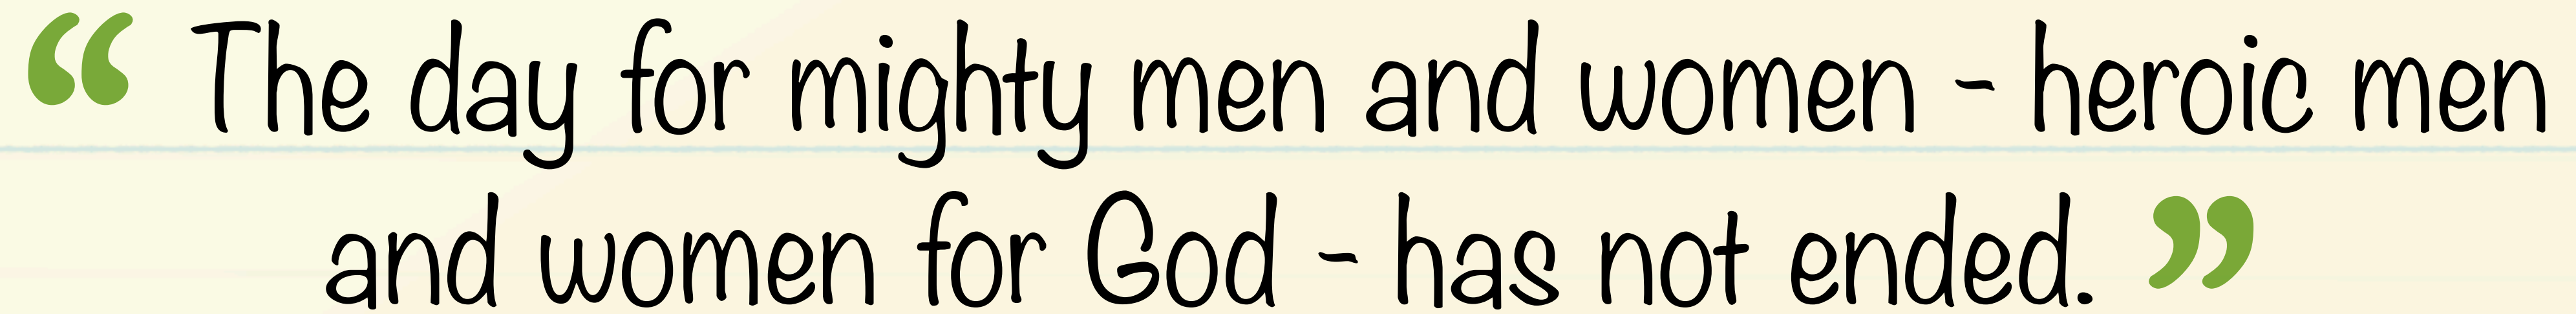 “ The day for mighty men and women - heroic men
and women for God - has not ended. ”